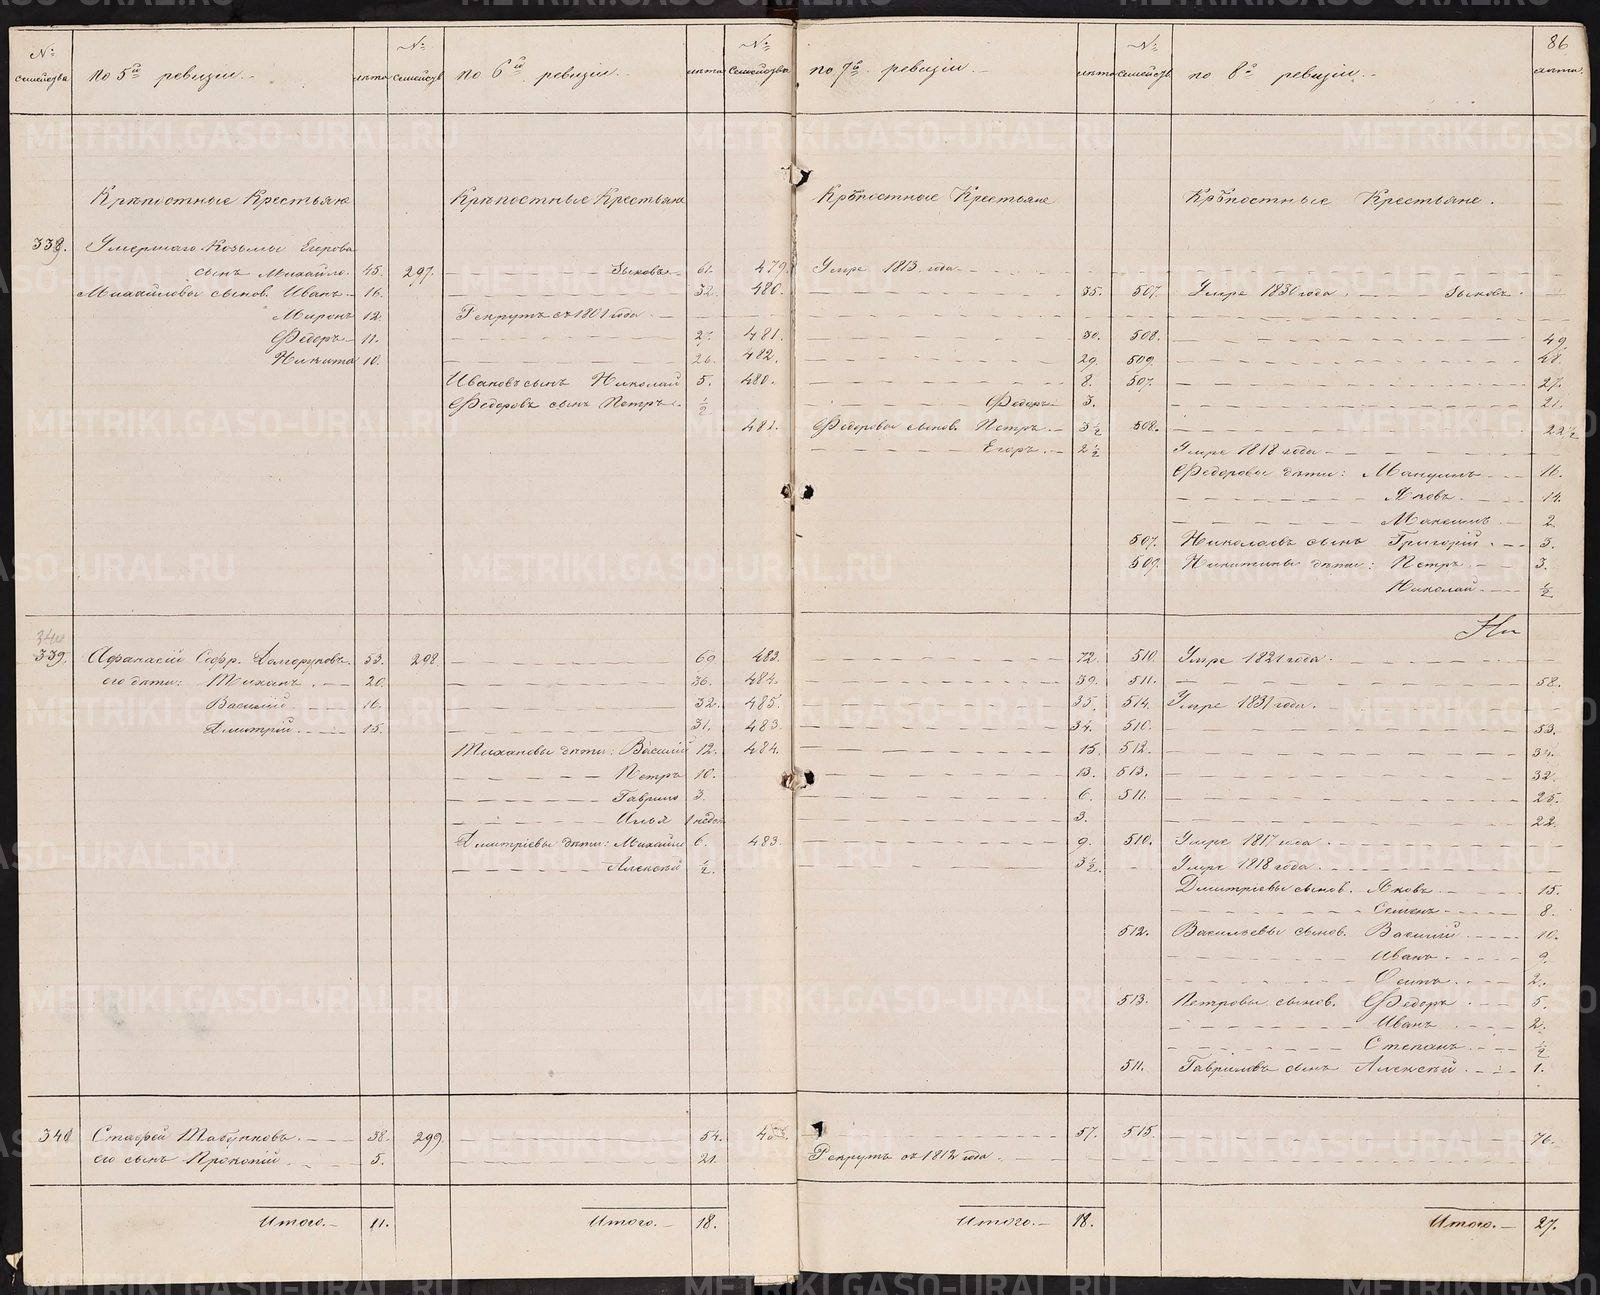 86
№ семействъ по 5й ревизіи лѣта № семейств по 6й ревизіи лѣта № семействъ по 7й ревизіи лѣта № семейств по 8й ревизіи лѣта
Крѣпостные Крестьяне Крѣпостные Крестьяне Крѣпостные Крестьяне Крѣпостные Крестьяне.
338. Умершаго Козьмы Егорова
сынъ Михайло. 45. 297. Зыковъ 61. 479. Умре 1813 года
Михайловы сынов. Иванъ 16. 32. 480. 35. 507. Умре 1831 года. Зыковъ.
Миронъ 12. Рекрутъ съ 1801 года
Федоръ 11. 27. 481. 30. 508. 49.
Никита 10. 26. 482. 29. 509. 48.
Ивановъ сынъ Николай 5. 480. 8. 507. 27.
Федоровъ сынъ Петръ ½ Федоръ 3. 21.
481. Федоровы сынов. Петръ 3½ 508. 22½
Егоръ 2½ Умре 1818 года
Федоровы дѣти: 16.
Яковъ 14.
Максимъ 2.
507. Николаевъ сынъ Григорій 3.
509. Никитины дѣти: Петръ 3.
Николай ½
339. Афанасій Софр. Долгоруковъ. 53. 298. 69. 483. 72. 510. Умре 1821 года.
его дѣти: Тиханъ 20. 36. 484. 39. 511. 58.
Василій 16. 32. 485. 35. 514. Умре 1831 года.
Дмитрій 15. 31. 483. 34. 510. 53.
Тихановы дѣти: Василій 12. 484. 15. 512. 34.
Петръ 10. 13. 513. 32.
Гаврило 3. 6. 511. 25.
Илья 1 недел 3. 22.
Дмитріевы дѣти: Михайло 6. 483. 9. 510. Умре 1817 года.
Алексѣй ½. 3½. Умре 1818 года.
Дмитріевы сынов. Яковъ 15.
Семенъ 8.
512. Васильевы сынов. Василій 10.
Иванъ 9.
Осипъ 2.
513. Петровы сынов. Федоръ 5.
Иванъ 2.
Степанъ ½
511. Гавриловъ сынъ Алексѣй 1.
340 38. 299. 54. 57. 515. 76.
его сынъ Прокопій 5. 21. Рекрутъ съ 1812 года.
Итого. 11. Итого. 18. Итого. 18. Итого. 27.
METRIKI.GASO-URAL.RU